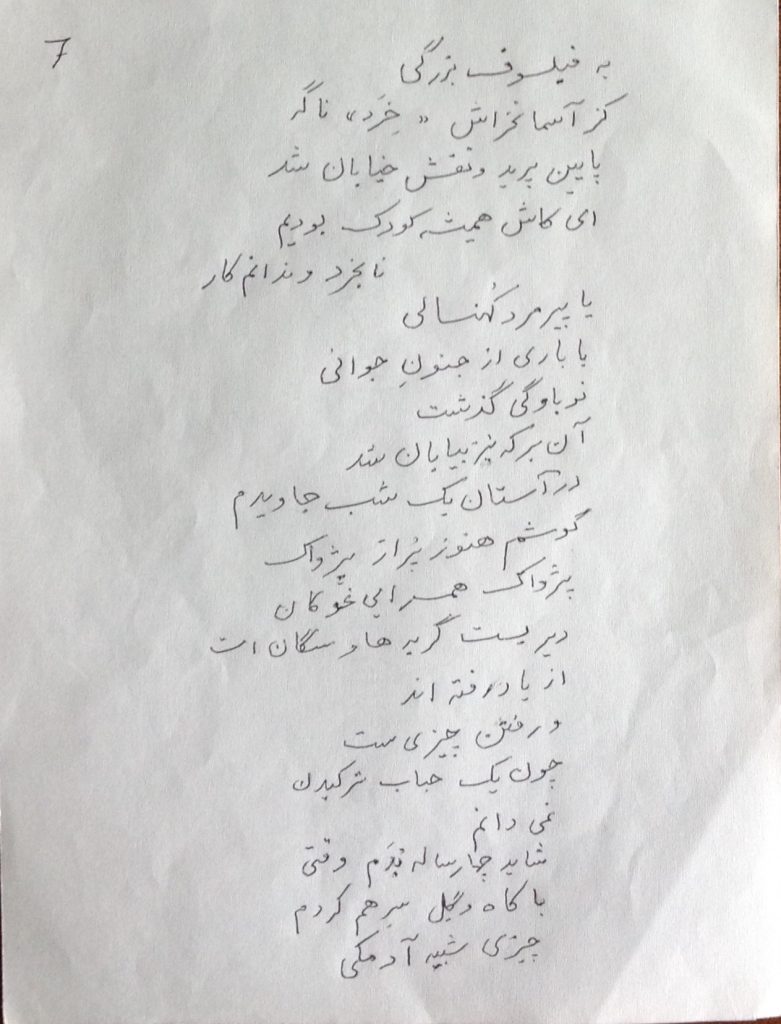 7
به فیلسوف بزرگی
کز آسمانخراش «خِرَد» ناگه
پایین پرید و نقش خیابان شد
ای کاش همیشه کودک بودیم
نابخرد و ندانم کار
یا پیرمرد کُهنسالی
با باری از جنونِ جوانی
نوباوگی گذشت
آن برکه نیز بیابان شد
در آستان یک شب جاویدم
گوشم هنوز پُر از پژواک
پژواک همسرایی غوکان
دیریست گربه ها و سگان ات
از یاد رفته اند
و رفتن چیزی ست
چون یک حباب ترکیدن
نمی دانم
شاید چهارساله بُدَم وقتی
با کاه و گِل سرهم کردم
چیزی شبیه آدمکی